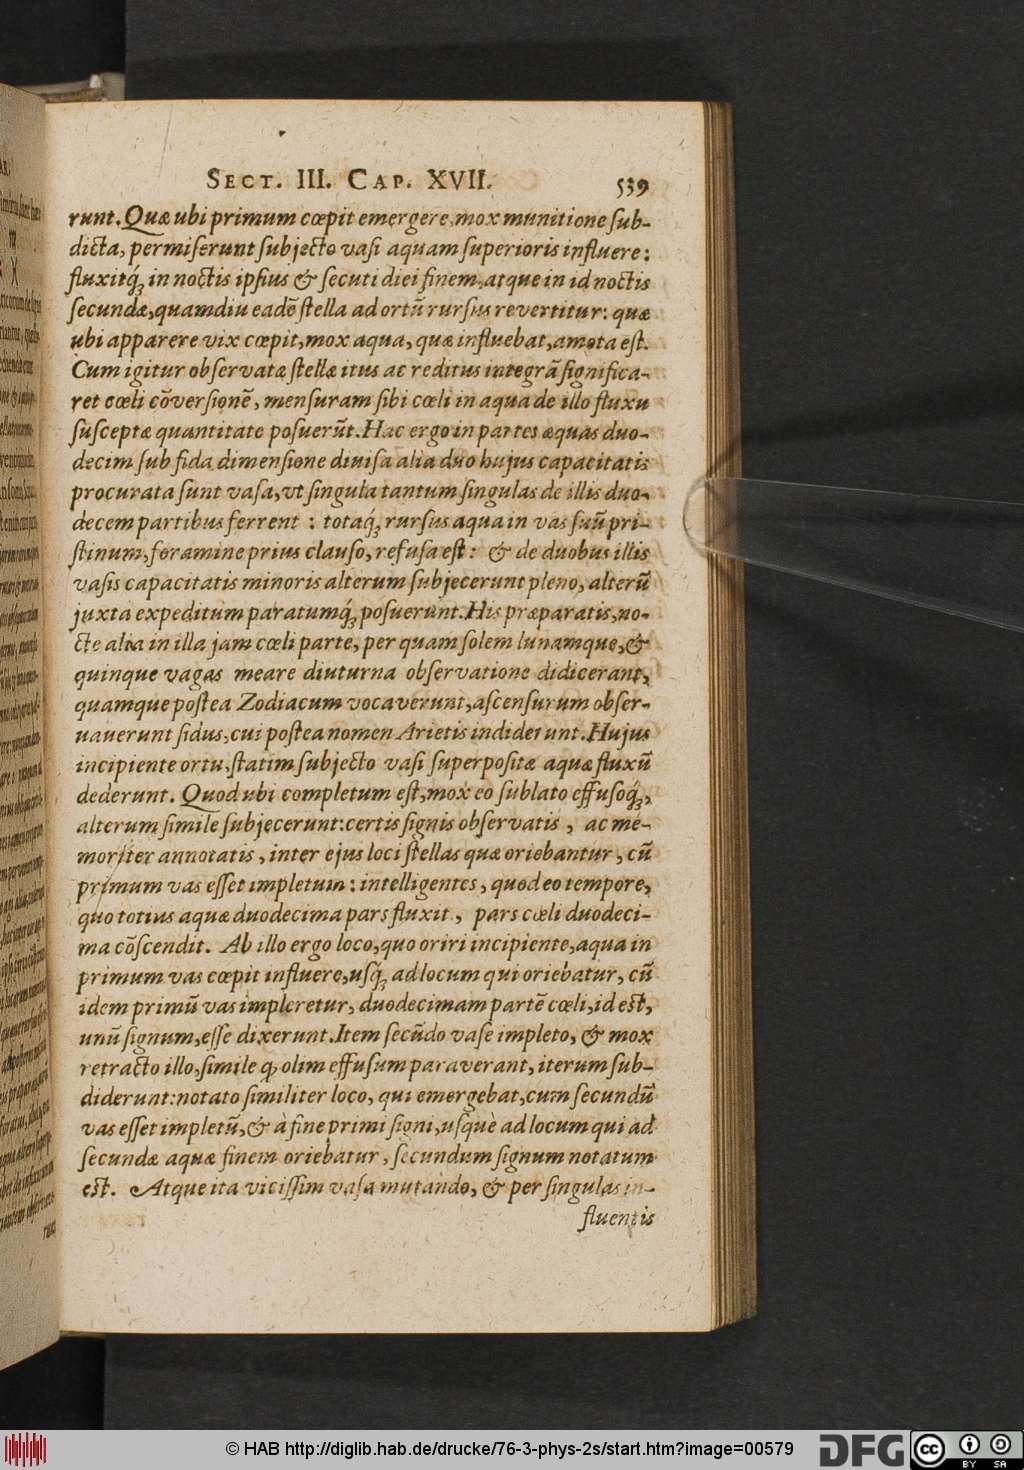 SECT. III. CAP. XVII. 539
runt. Quæ ubi primum cœpit emergere, mox munitione ſub-
dicta, permiſerunt ſubjecto vaſi aquam ſuperioris influere:
fluxitq́; in noctis ipſius & ſecuti diei finem, atque in id noctis
ſecundæ, quamdiu eadē ſtella ad ortū rurſus revertitur: quæ
ubi apparere vix cœpit, mox aqua, quæ influebat, amota eſt.
Cum igitur obſervatæ ſtellæ itus ac reditus integrā ſignifica-
ret cœli cōverſionē, menſuram ſibi cœli in aqua de illo fluxu
ſuſceptæ quantitate poſuerūt. Hac ergo in partes æquas duo-
decim ſub fida dimenſione diviſa alia duo hujus capacitatis
procurata ſunt vaſa, vt ſingula tantum ſingulas de illis duo-
decem partibus ferrent : totaq́; rurſus aqua in vas ſuū pri-
ſtinum, foramine prius clauſo, refuſa eſt: & de duobus illis
vaſis capacitatis minoris alterum ſubjecerunt pleno, alterū
juxta expeditum paratumq́; poſuerunt. His præparatis, no-
cte alia in illa jam cœli parte, per quam ſolem lunamque, &
quinque vagas meare diuturna obſervatione didicerant,
quamque poſtea Zodiacum vocaverunt, aſcenſurum obſer-
vauerunt ſidus, cui poſtea nomen Arietis indiderunt. Hujus
incipiente ortu, ſtatim ſubjecto vaſi ſuperpoſitæ aquæ fluxū
dederunt. Quod ubi completum eſt, mox eo ſublato effuſoq́;,
alterum ſimile ſubjecerunt: certis ſignis obſervatis , ac me-
moriter annotatis, inter ejus loci ſtellas quæ oriebantur, cū
primum vas eſſet impletum: intelligentes, quod eo tempore,
quo totius aquæ duodecima pars fluxit, pars cœli duodeci-
ma cōſcendit. Ab illo ergo loco, quo oriri incipiente, aqua in
primum vas cœpit influere, uſq́; ad locum qui oriebatur, cū
idem primū vas impleretur, duodecimam partē cœli, id eſt,
unū ſignum, eſſe dixerunt. Item ſecūdo vaſe impleto, & mox
retracto illo, ſimile q̨ olim effuſum paraverant, iterum ſub-
diderunt: notato ſimiliter loco, qui emergebat, cum ſecundū
vas eſſet impletū, & à fine primi ſigni, uſquè ad locum qui ad
ſecundæ aquæ finem oriebatur, ſecundum ſignum notatum
eſt. Atque ita viciſſim vaſa mutando, & per ſingulas in-
fluentis
© HAB http://diglib.hab.de/drucke/76-3-phys-2s/start.htm?image=00579
DFG
cc BY SA